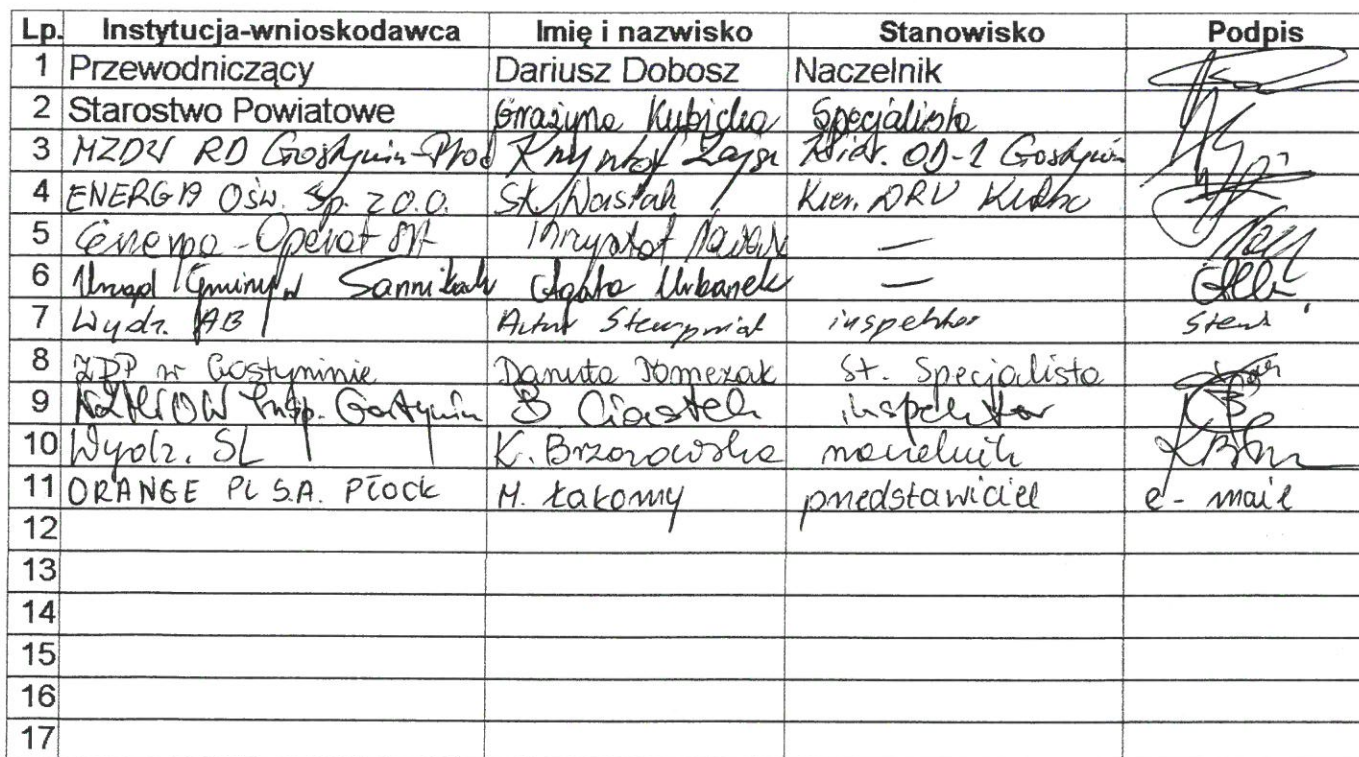 Lp. Instytucja-wnioskodawca Imię i nazwisko Stanowisko Podpis
1 Przewodniczący Dariusz Dobosz Naczelnik
2 Starostwo Powiatowe Grażyna Kubicka Specjalista
3 MZDW RD Gostynin-Płock Krzysztof Zając Kier. OD-1 Gostynin
4 ENERGA Ośw. Sp. z o.o. St. Wasiak Kier. DRU Kutno
5 Energa-Operator SA Krzysztof Nowak —
6 Urząd Gminy w Sannikach Agata Urbanek —
7 Wydz. AB Artur Stempniak inspektor
8 ZDP w Gostyninie Danuta Tomczak St. Specjalista
9 Insp. Gostynin B Ciastek inspektor
10 Wydz. SL K. Brzozowska naczelnik
11 ORANGE PL S.A. Płock M. Łakomy przedstawiciel e-mail
12
13
14
15
16
17